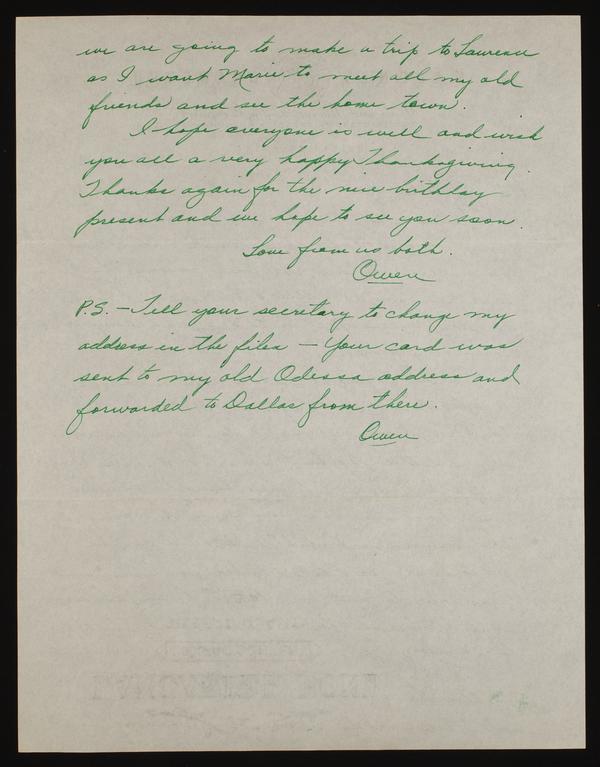 we are going to make a trip to Lawrence
as I want Marie to meet all my old
friends and see the home town.
I hope everyone is well and wish
you all a very happy Thanksgiving.
Thanks again for the nice birthday
present and we hope to see you soon.
Love from us both.
Owen
P.S. - Tell your secretary to change my
address in the files - Your card was
sent to my old Odessa address and
forwarded to Dallas from there.
Owen